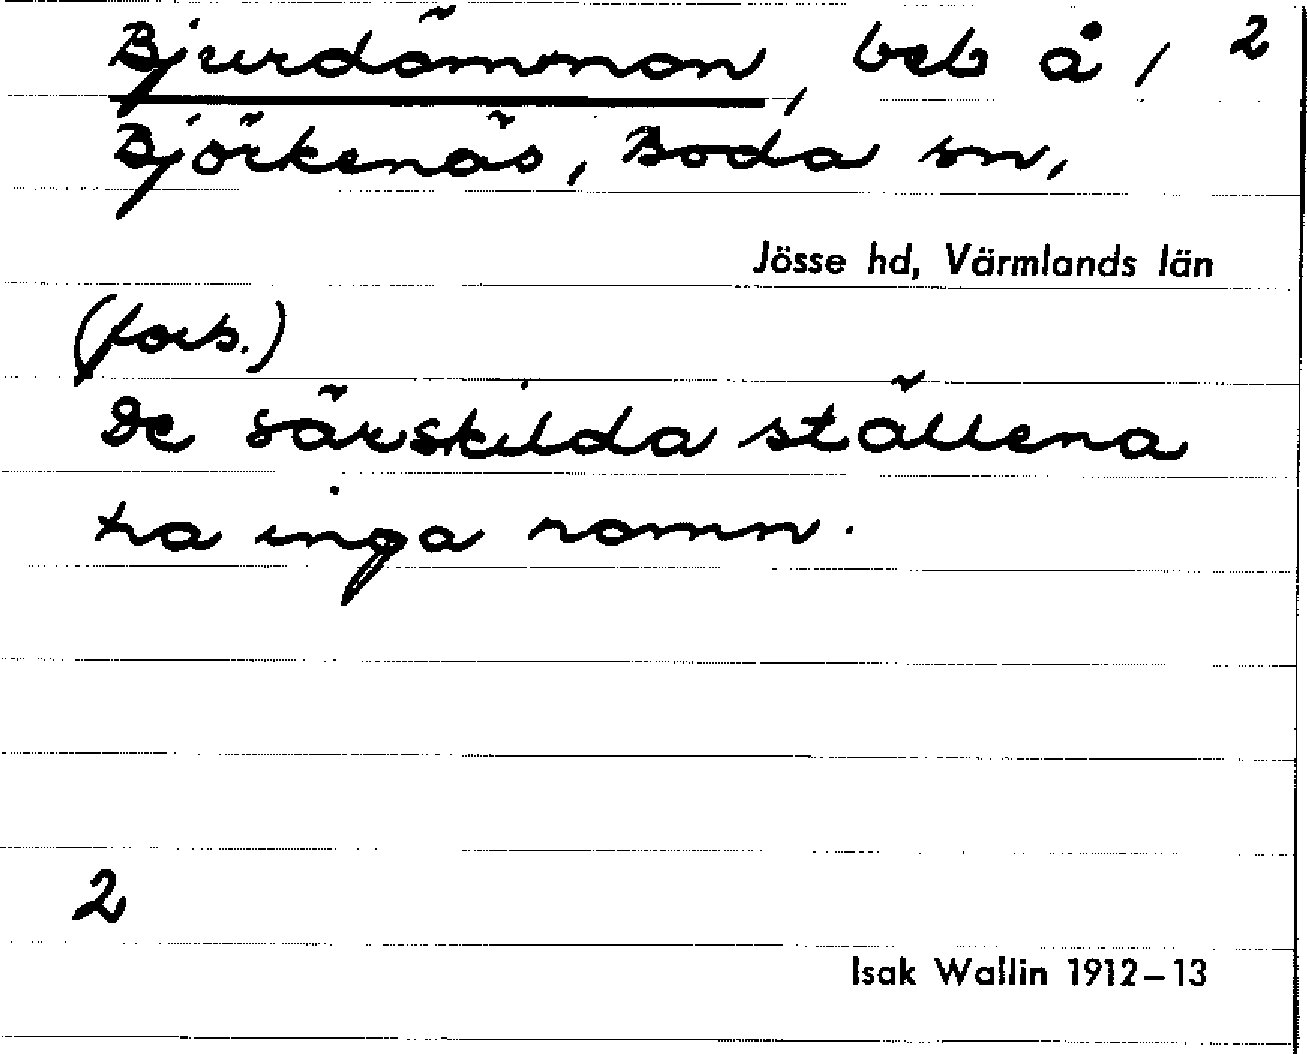 Bjurdämman, beb å, 2
Björkenäs, Boda sn,
Jösse hd, Värmlands län
(forts.)
De särskilda ställena
ha inga namn.
2
Isak Wallin 1912–13